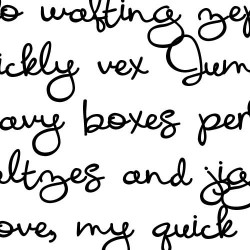 o wafting zep
ickly vex Jum
avy boxes per
altzes and jig
ove, my quick